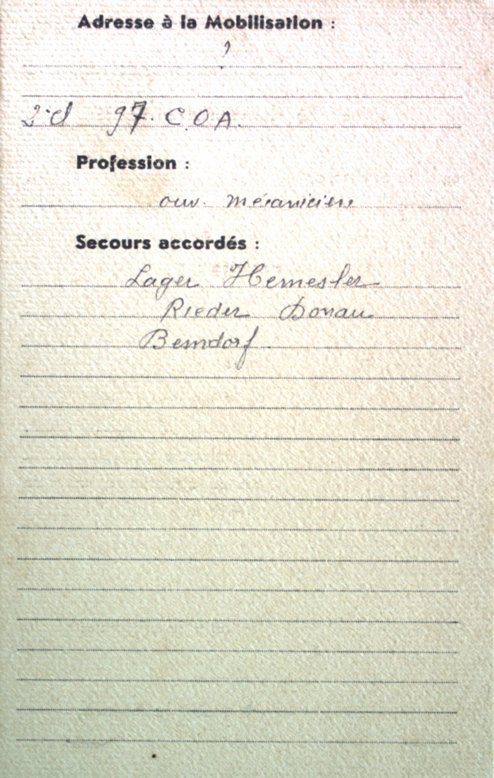 Adresse à la Mobilisation :
?
2 cl 97. C.O.A.
Profession :
ouv. mécanicien
Secours accordés :
Lager Hemesler
Rieder Donau
Berndorf.